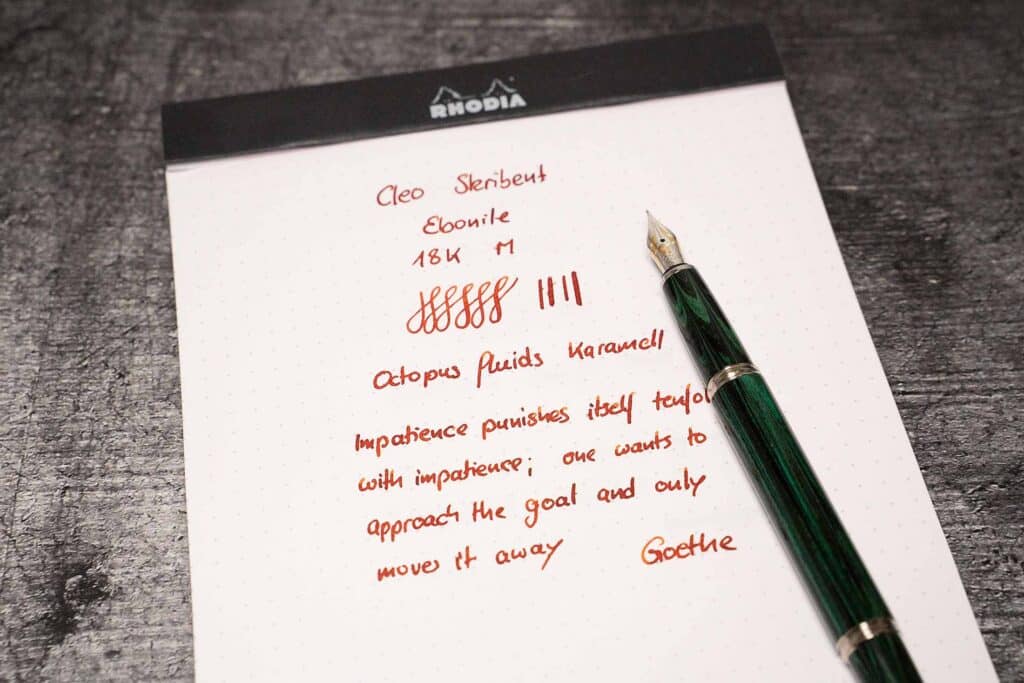 RHODIA
Cleo Skribent
Ebonite
18K M
Octopus fluids Karamell
Impatience punishes itself tenfol
with impatience; one wants to
approach the goal and only
moves it away Goethe